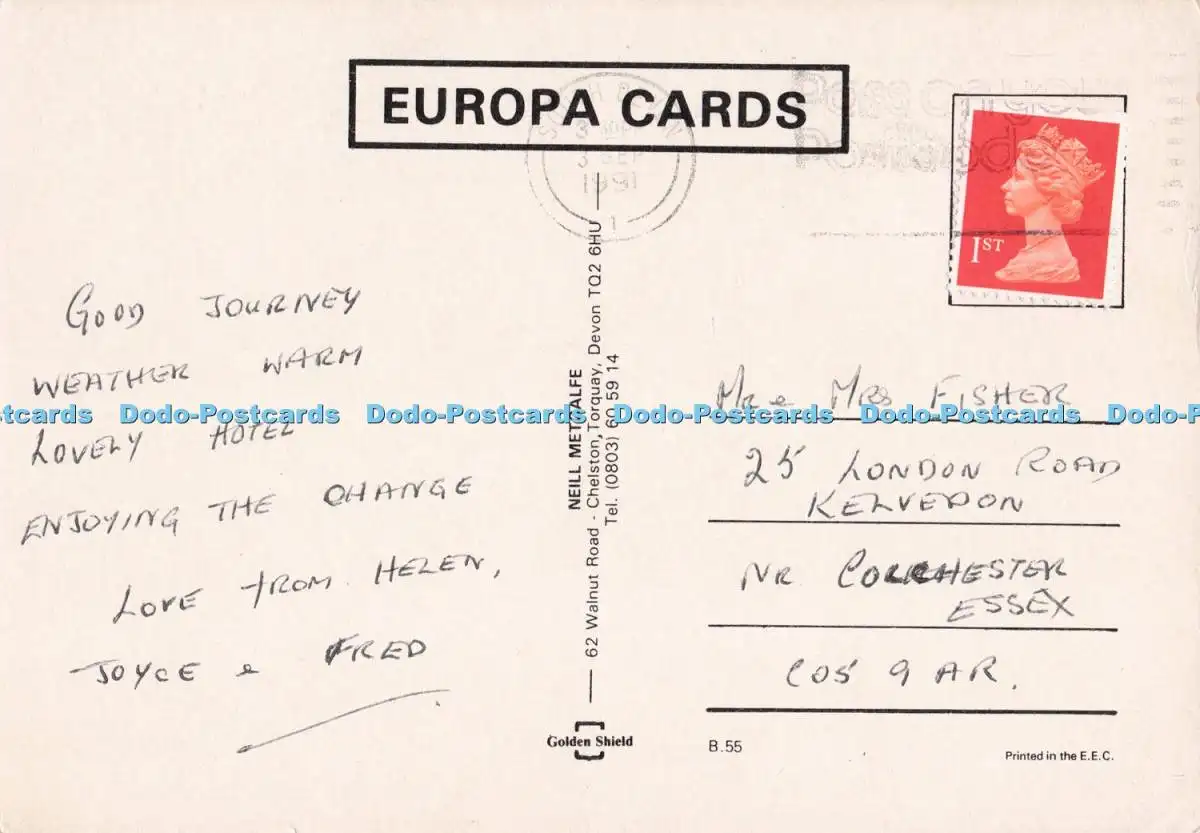 EUROPA CARDS
3 SEP
1991
1
1ST
GOOD JOURNEY
WEATHER WARM
LOVELY HOTEL
ENJOYING THE CHANGE
LOVE FROM HELEN,
JOYCE & FRED
NEILL METCALFE
62 Walnut Road - Chelston, Torquay, Devon TQ2 6HU
Tel. (0803) 60 59 14
Golden Shield
MR & MRS FISHER
25 LONDON ROAD
KELVEDON
NR COLCHESTER
ESSEX
CO5 9AR.
B.55
Printed in the E.E.C.
Dodo-Postcards Dodo-Postcards Dodo-Postcards Dodo-Postcards